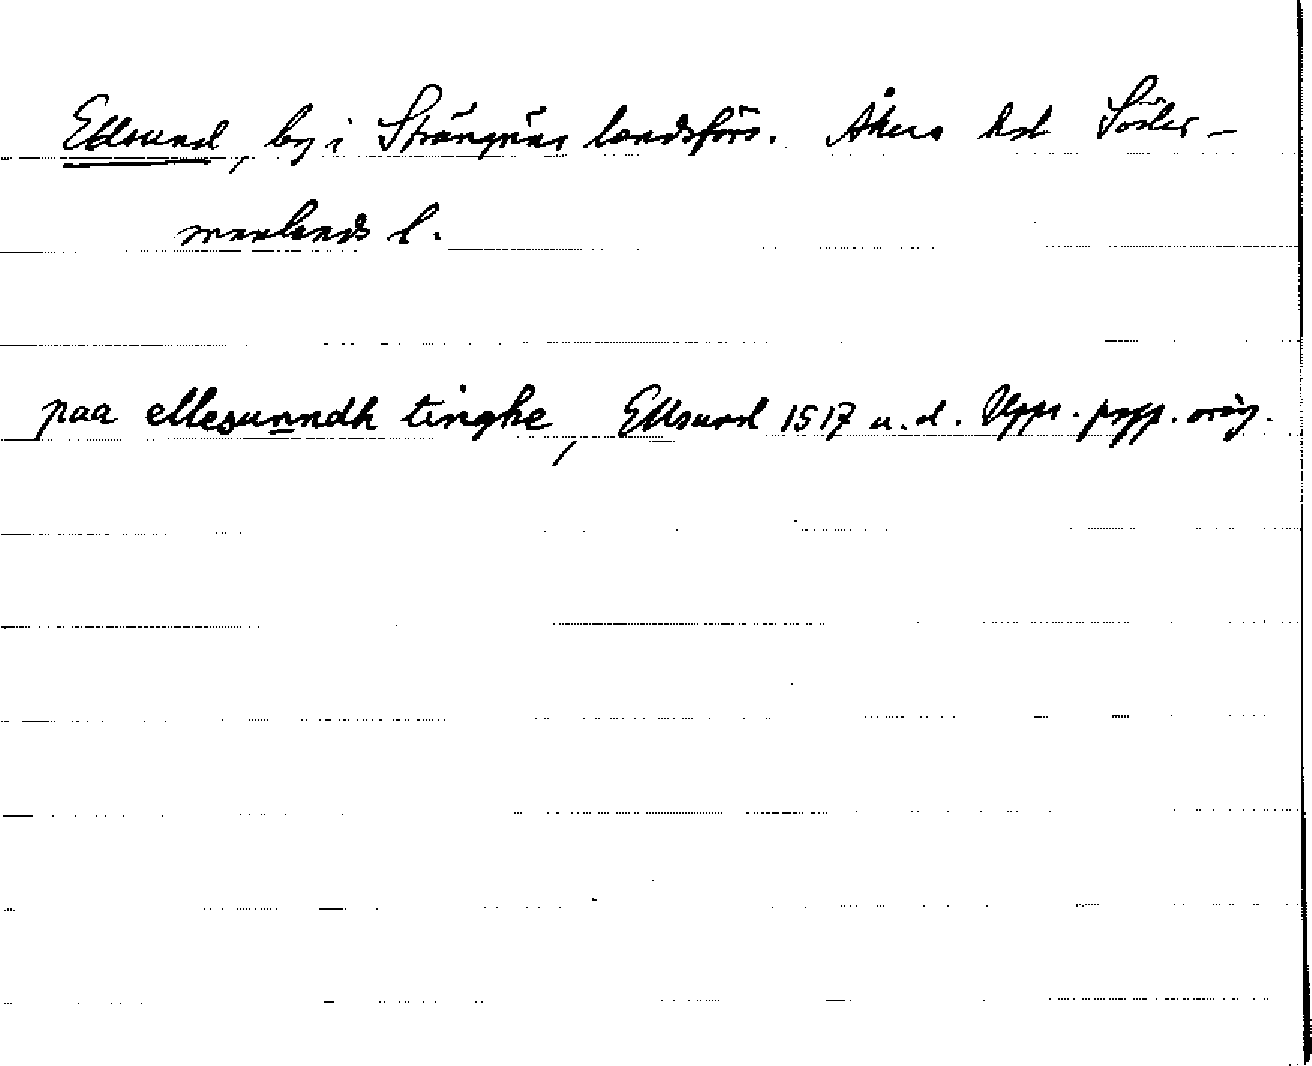 Edsund, by i Strängnäs landsförs. Åkers hd Söder-
manlands l.
paa ellesunndh tinghe, Ellsund 1517 u.d. Uppr. papp. orig.